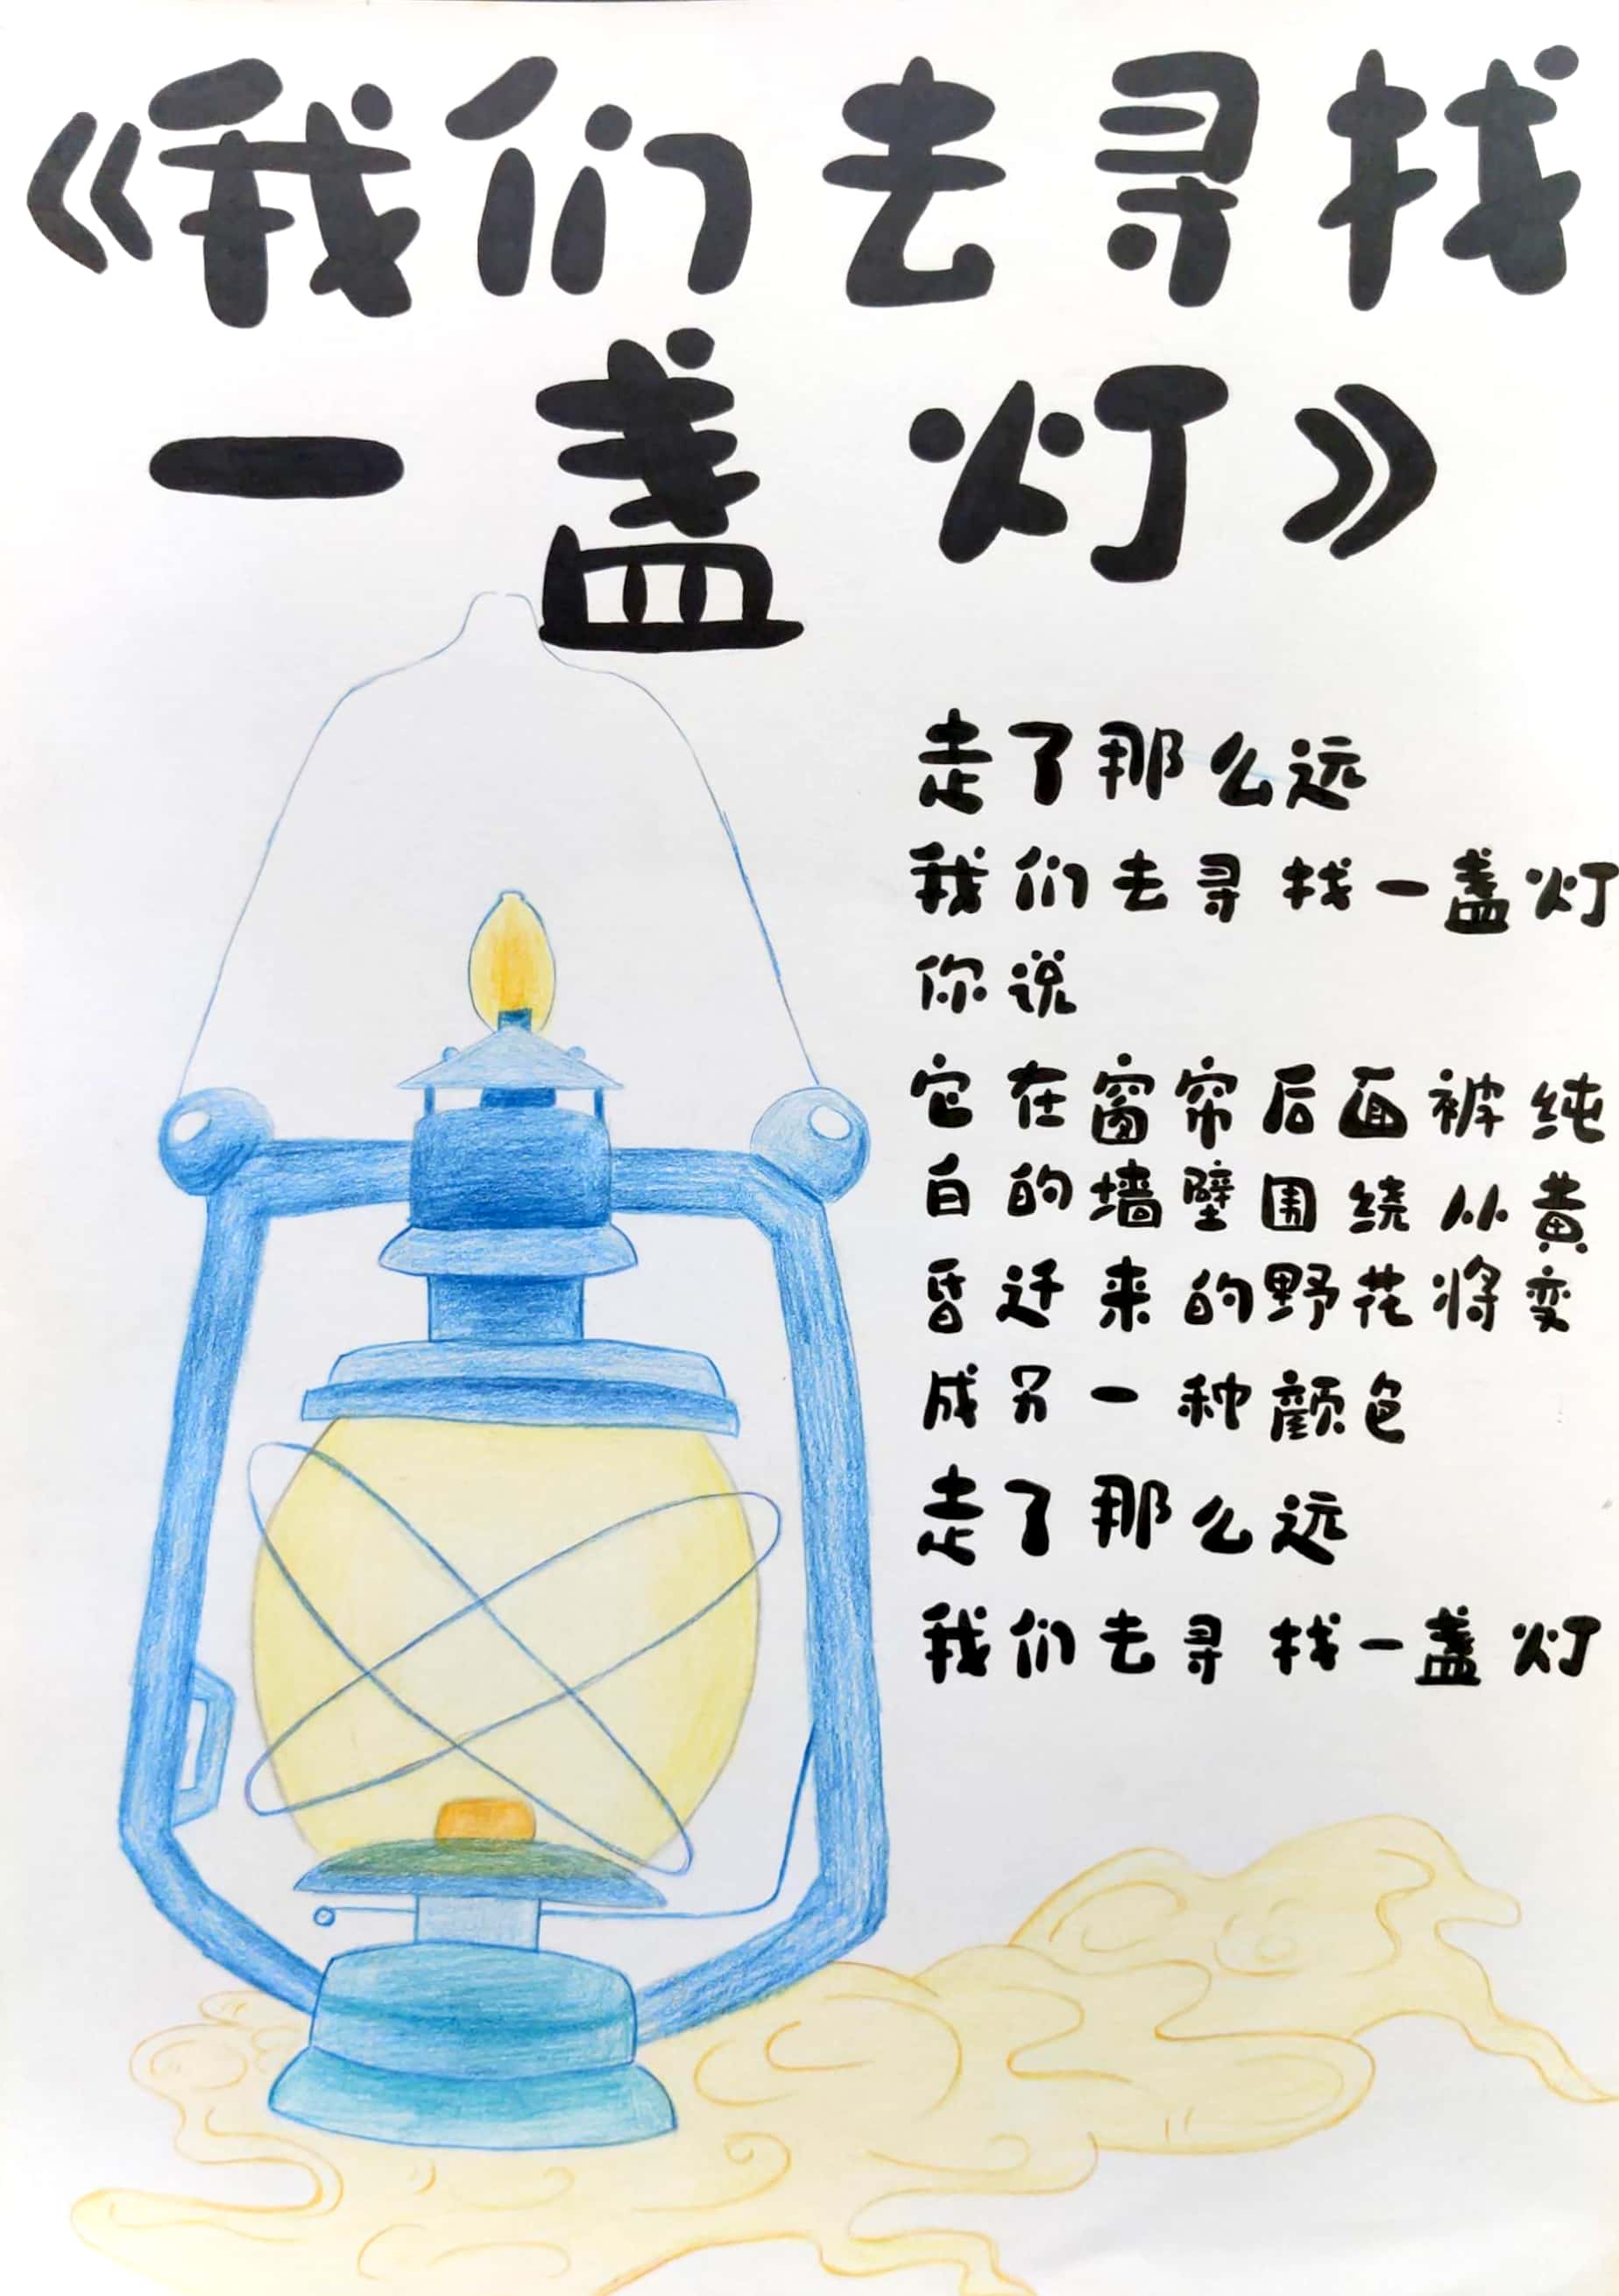 《我们去寻找
一盏灯》
走了那么远
我们去寻找一盏灯
你说
它在窗帘后面被纯
白的墙壁围绕从黄
昏迁来的野花将变
成另一种颜色
走了那么远
我们去寻找一盏灯